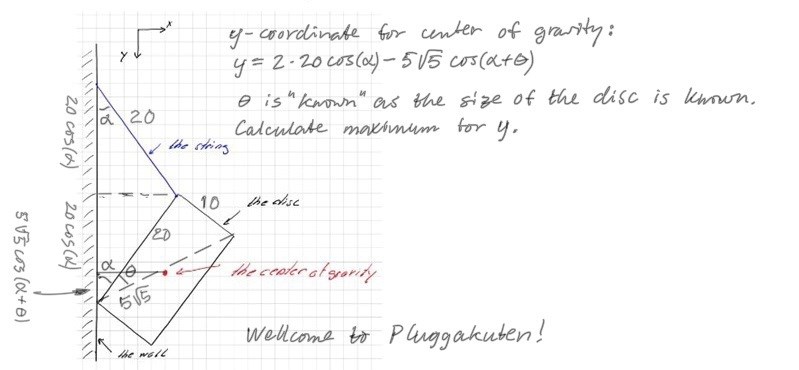 x
y
y-coordinate for center of gravity:
y = 2·20 cos(α) - 5√5 cos(α+θ)
θ is "known" as the size of the disc is known.
Calculate maximum for y.
20 cos(α)
α
20
the string
10
the disc
20 cos(α)
20
α
θ
the center of gravity
5√5
5√5 cos(α+θ)
the wall
Wellcome to Pluggakuten!